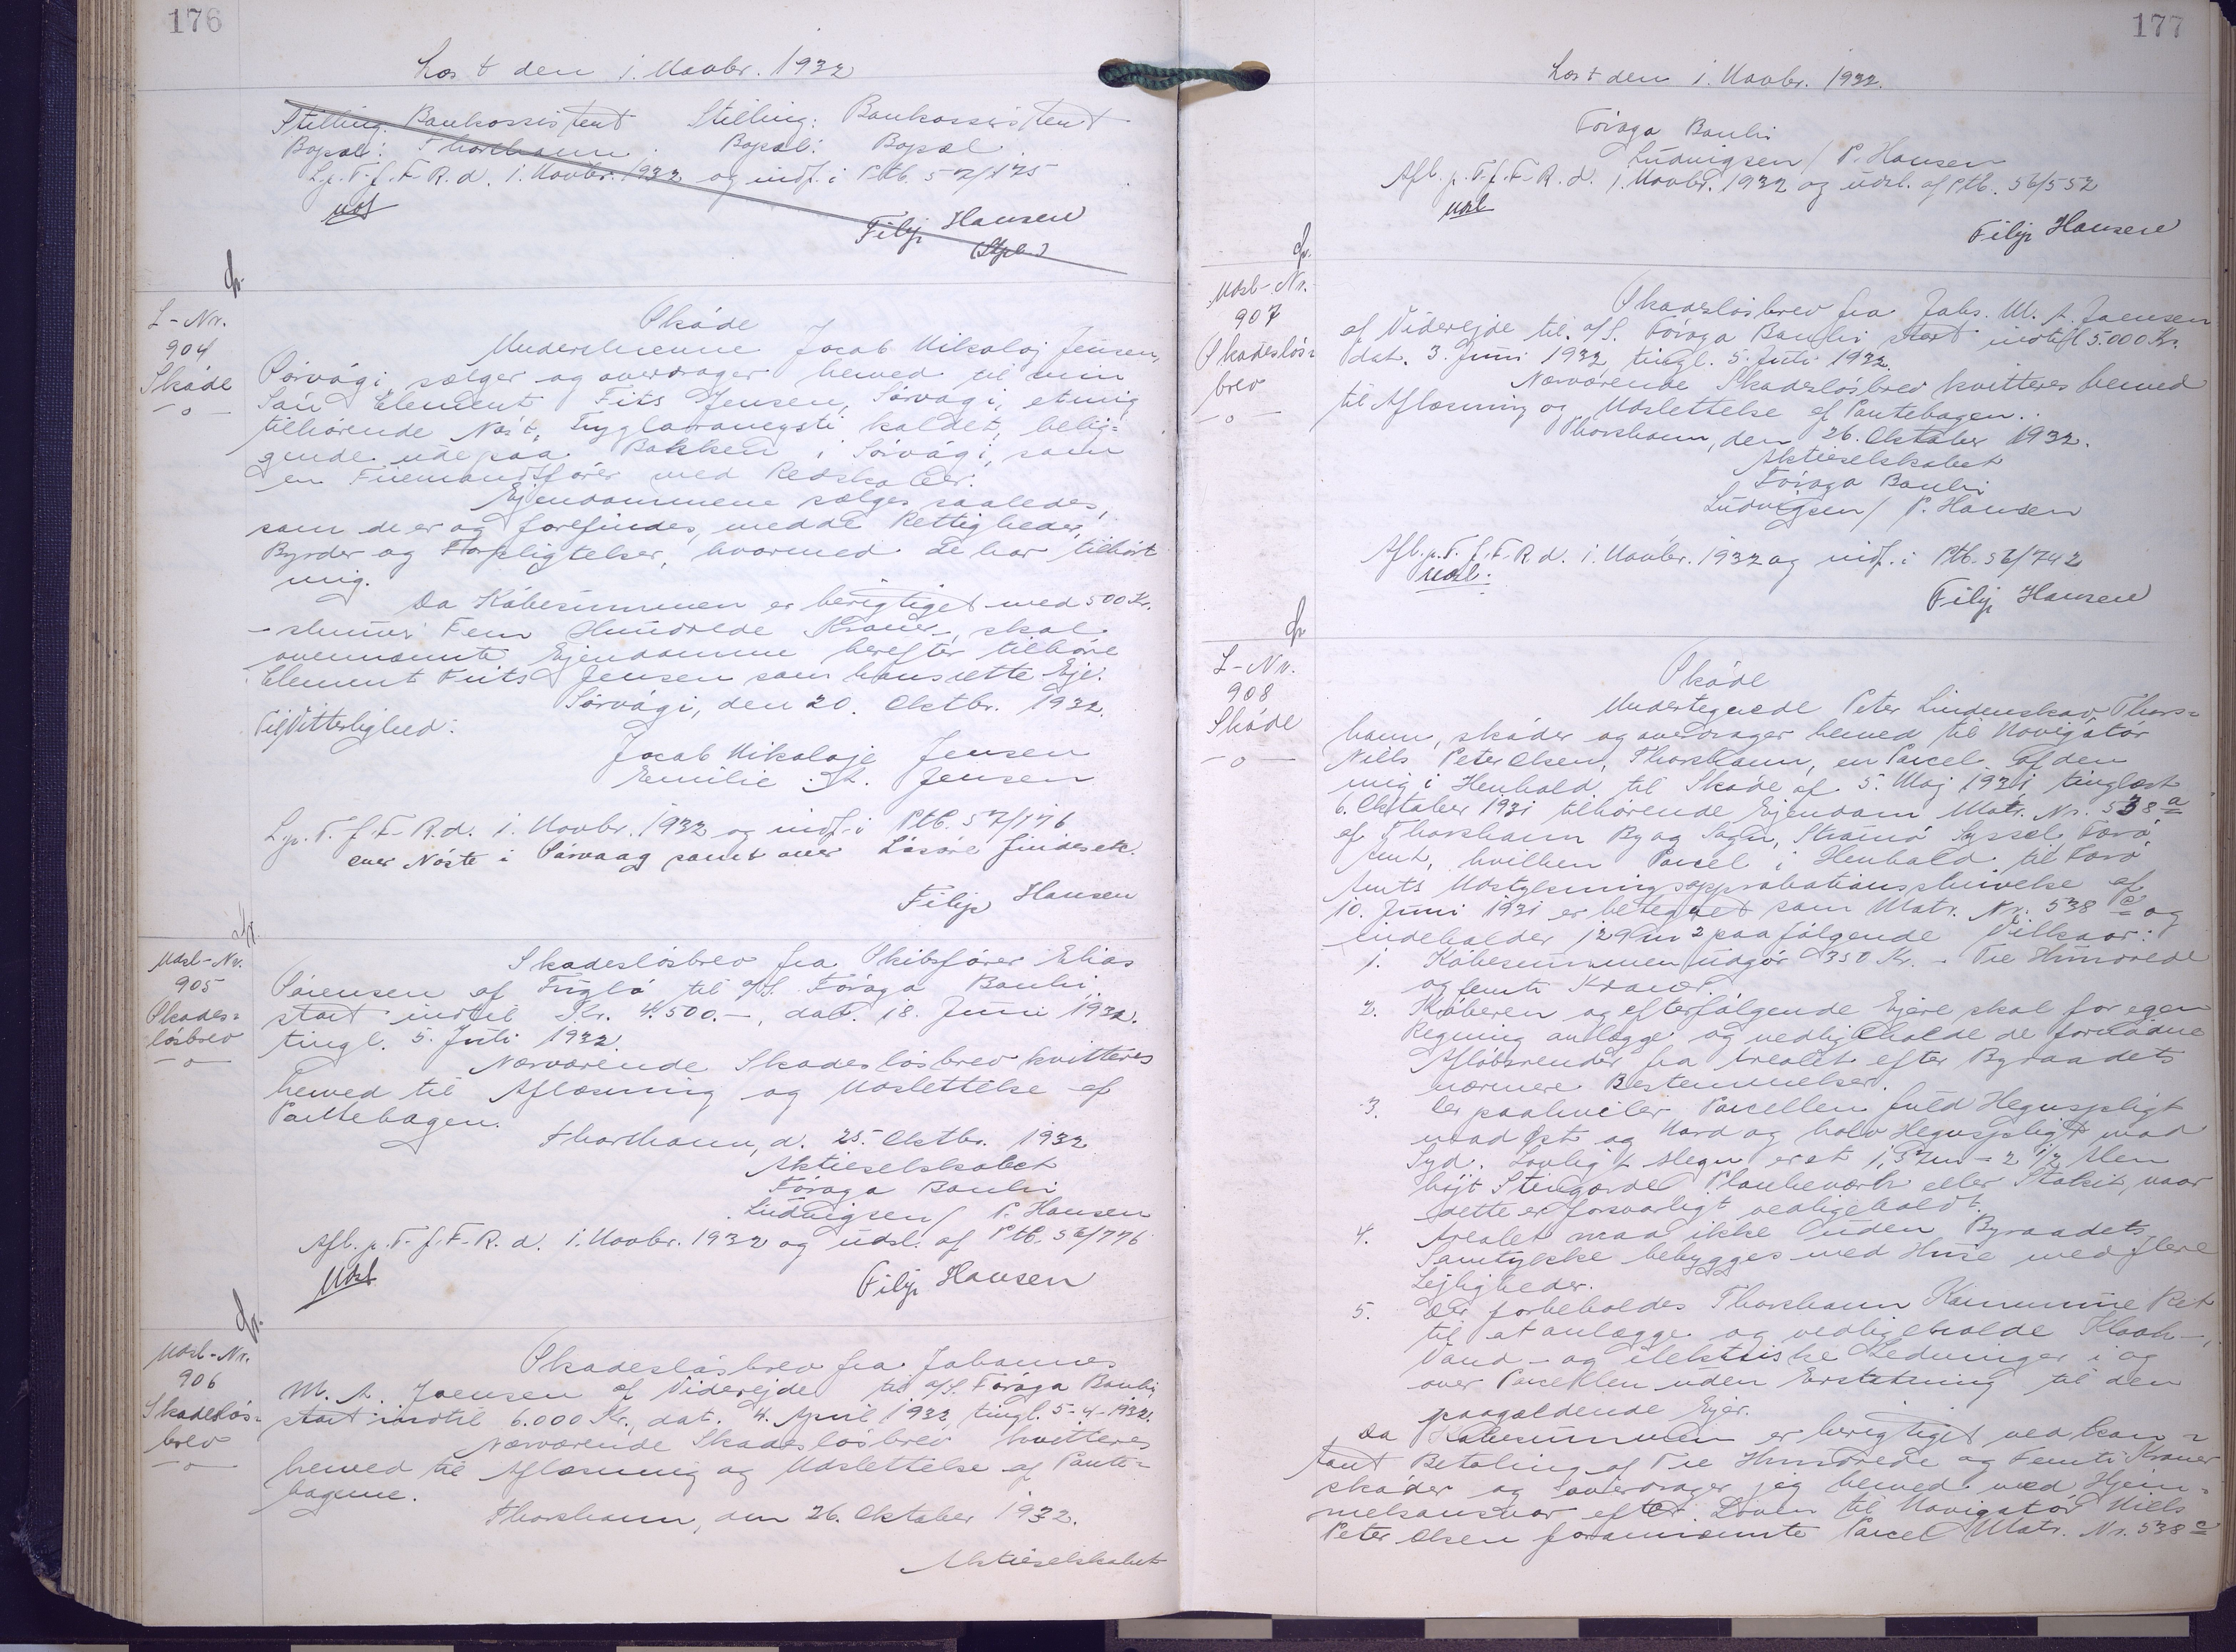 176
Læst den 1. Novbr. 1932
Stilling: Bankassistent Stilling: Bankassistent
Bopæl: Thorshavn. Bopæl: Bopæl.
L.p.T.f.F.R.d. 1. Novbr. 1932 og indf. i Ptb. 57/175
Filip Hansen
L-Nr.
904
Skøde
—o—
Skøde
Undertegnede Jacob Nikolaj Jensen,
Sørvági, sælger og overdrager herved til min
Søn Clement Frits Jensen, Sørvági, et mig
tilhørende Nøst, kaldet, belig=
gende ude paa Bakken i Sørvági, som
en Firemandsfører med Redskaber.
Ejendommene sælges saaledes,
som de er og forefindes, med de Rettigheder,
Byrder og Forpligtelser, hvormed de har tilhørt
mig.
Da Købesummen er berigtiget med 500 Kr.
- skriver Fem Hundrede Kroner -, skal
ovennævnte Ejendomme herefter tilhøre
Clement Frits Jensen som hans rette Eje.
Sørvági, den 20. Oktbr. 1932.
Til Vitterlighed:
Jacob Nikolaje Jensen
Emilie Jensen
L.p.T.f.F.R.d. 1. Novbr. 1932 og indf. i Ptb. 57/176
over Nøste i Sørvaag samt over Løsøre findes etc.
Filip Hansen
Udsl-Nr.
905
Skades=
løsbrev
—o—
Skadesløsbrev fra Skibsfører Elias
Sørensen af Fuglø til A/S. Føroya Banki
stort indtil Kr. 4.500.-, dat. 18. Juni 1932.
tingl. 5. Juli 1932.
Nærværende Skadesløsbrev kvitteres
herved til Aflæsning og Udslettelse af
Pantebogen.
Thorshavn, d. 25. Oktbr. 1932
Aktieselskabet
Føroya Banki
Ludvigsen / P. Hansen
Afl.p.T.f.F.R.d. 1. Novbr. 1932 og udsl. af Ptb. 56/776
Udsl.
Filip Hansen
Udsl-Nr.
906
Skadesløs=
brev
—o—
Skadesløsbrev fra Johannes
M. A. Joensen af Viderejde til A/S. Føroya Banki,
stort indtil 6.000 Kr., dat. 4. April 1932, tingl. 5-4-1932.
Nærværende Skadesløsbrev kvitteres
herved til Aflæsning og Udslettelse af Pante=
bogene.
Thorshavn, den 26. Oktober 1932.
Aktieselskabet
177
Læst den 1. Novbr. 1932.
Føroya Banki
Ludvigsen / P. Hansen
Afl.p.T.f.F.R.d. 1. Novbr. 1932 og udsl. af Ptb. 56/552
Udsl
Filip Hansen
Udsl-Nr.
907
Skadesløs=
brev
—o—
Skadesløsbrev fra Johs. M. A. Joensen
af Viderejde til A/S. Føroya Banki stort indtil 5.000 Kr.
dat. 3. Juni 1932, tingl. 5. Juli 1932.
Nærværende Skadesløsbrev kvitteres herved
til Aflæsning og Udslettelse af Pantebogen.
Thorshavn, den 26. Oktober 1932.
Aktieselskabet
Føroya Banki
Ludvigsen / P. Hansen
Afl.p.T.f.F.R.d. 1. Novbr. 1932 og indf. i Ptb. 56/742
Udsl.
Filip Hansen
L-Nr.
908
Skøde
—o—
Skøde
Undertegnede Peter Lindenskov Thors=
havn, skøder og overdrager herved til Navigatør
Niels Peter Olsen, Thorshavn, en Parcel af den
mig i Henhold til Skøde af 5. Maj 1931 tinglæst
6. Oktober 1931 tilhørende Ejendom Matr. Nr. 538 a
af Thorshavn By og Sogn, Strømø Syssel, Færø
Amt, hvilken Parcel i Henhold til Færø
Amts Udstykningsapprobationsskrivelse af
10. Juni 1931 er betegnet som Matr. Nr. 538 c og
indeholder 129 m2 paa følgende Vilkaar:
1. Købesummen udgør 350 Kr. - Tre Hundrede
og femti Kroner.
2. Køberen og efterfølgende Ejere skal for egen
Regning anlægge og vedligeholde de fornødne
Afløbsrender fra Arealet efter Byraadets
nærmere Bestemmelser.
3. Der paahviler Parcellen fuld Hegnspligt
mod Øst og Nord og halv Hegnspligt mod
Syd. Lovligt Hegn er et 1,57 m = 2 1/2 Alen
højt Stengærde Plankeværk eller Stakit, naar
dette er forsvarligt vedligeholdt.
4. Arealet maa ikke uden Byraadets
Samtykke bebygges med Huse med flere
Lejligheder.
5. Der forbeholdes Thorshavn Kommune Ret
til at anlægge og vedligeholde Kloak-,
Vand- og elektriske Ledninger i og
over Parcellen uden Erstatning til den
paagældende Ejer.
Da Købesummen er berigtiget ved kon=
tant Betaling af Tre Hundrede og Femti Kroner
skøder og overdrager jeg herved med Hjem=
melsansvar efter Loven til Navigatør Niels
Peter Olsen forannævnte Parcel Matr. Nr. 538 c